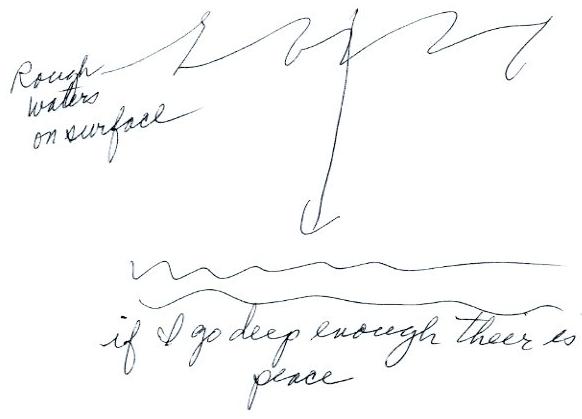 Rough
waters
on surface
if I go deep enough their is
peace